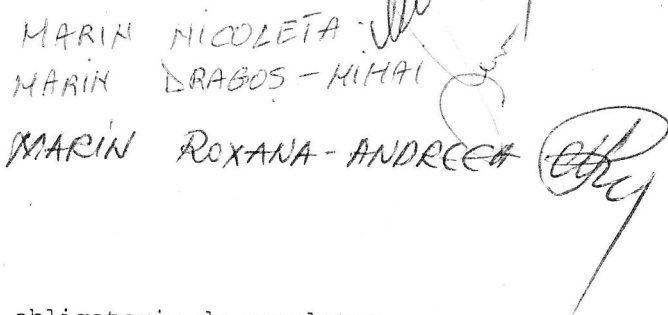 MARIN NICOLETA
MARIN DRAGOS-MIHAI
MARIN ROXANA-ANDREEA